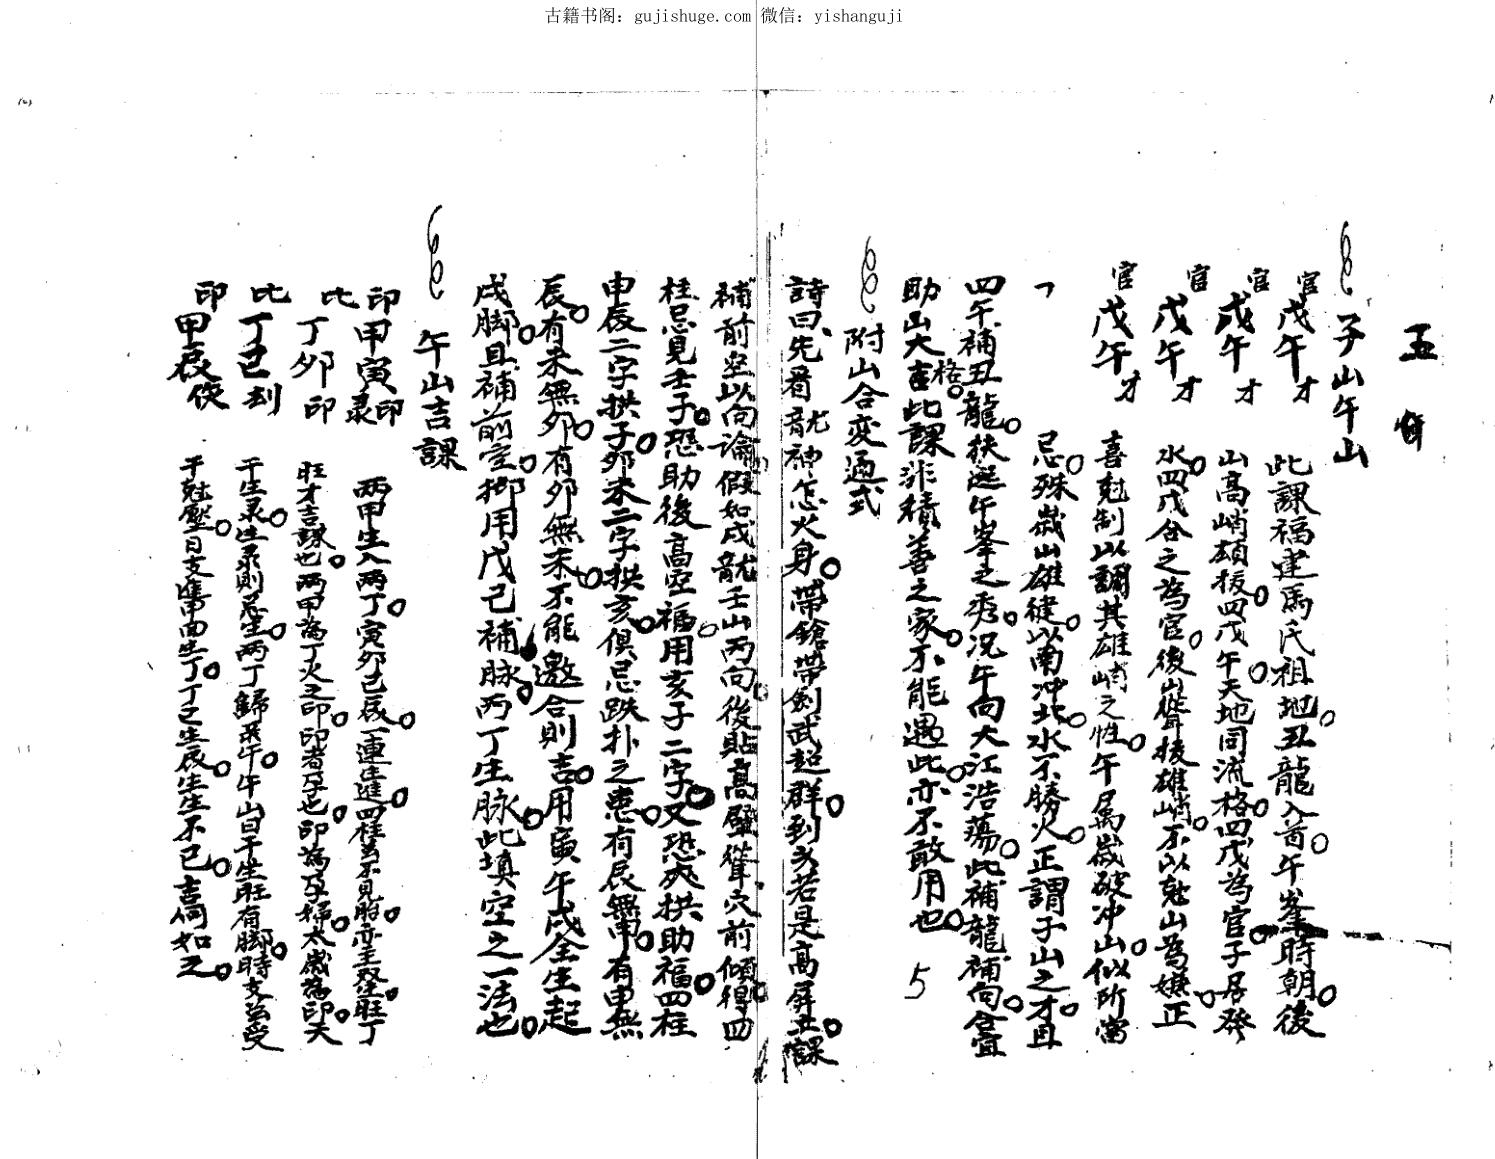 古籍书阁：gujishuge.com 微信：yishanguji
五
子山午山
官 戊午 才
官 戊午 才
官 戊午 才
官 戊午 才
此課福建馬氏祖地丑龍入首午峯時朝後
山高峭雄拔四戊午天地同流格四戊為官子居癸
水四戊合之為官後聳拔雄峭不以尅山為嫌正
喜尅制以調其雄峭之性午屬歲破冲山似所當
忌殊歲山雄健以南冲北水不勝火正謂子山之才且
四午補丑龍扶逆午峯之秀况午向大江浩荡此補龍補向合宜
助山大吉此課非積善之家不能遇此亦不敢用也
5
附山合変通式
詩曰先看龍神怎火身帶鎗帶劍武超群到久若是高屏丑課
補前空以向論假如戍龍壬山丙向後貼高聳穴前傾得四
柱忌見壬子恐助後高空福用亥子二字又恐夾拱助福四柱
申辰二字拱子夘未二字拱亥俱忌跌扑之患有辰無申有申無
辰有未無夘有夘無未不能邀合則吉用寅午戌全生起
戌脚且補前空抑用戊己補脉丙丁生脉此填空之一法也
午山吉課
印 甲寅 印 彔
比 丁夘 印
比 丁巳 刦
印 甲辰 伤
两甲生入两丁寅夘巳辰一連生進四柱不見胎亦主發旺丁
旺才吉課也两甲為丁火之印印者孕也印為孕婦太歲為印大
干生彔生彔則忌生两丁歸彔午午山日干生旺有脚時支受
干尅壓日支進甲而生丁丁巳生辰生生不已吉何如之